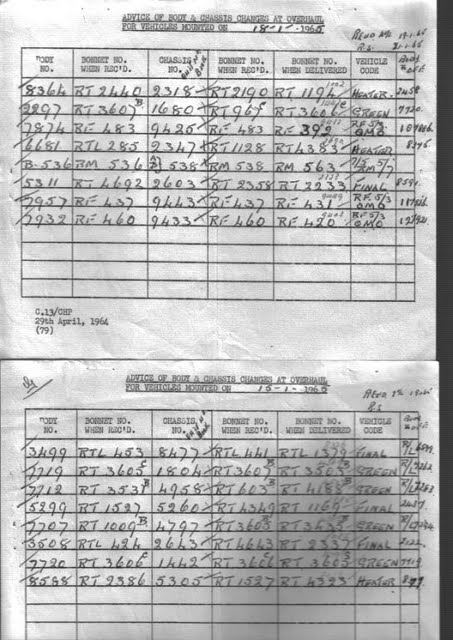 ADVICE OF BODY & CHASSIS CHANGES AT OVERHAUL
FOR VEHICLES MOUNTED ON 18-1-1965
BODY NO. BONNET NO. WHEN REC'D. CHASSIS NO. BONNET NO. WHEN DELIVERED VEHICLE CODE
8364 RT 2440 2318 RT 2190 RT 1194 HEATER 2458
2297 RT 3607 B 1680 RT 967 RT 3606 GREEN 7720
7874 RF 483 9425 RF 483 RF 392 RF 5/3 OMO
6681 RTL 285 2347 RT 1128 RT 4383 HEATER 8375
B-536 RM 536 538 RM 538 RM 563
5311 RT 4692 2603 RT 2358 RT 2233 FINAL
7957 RF 437 9443 RF 437 RF 431 RF 5/3 OMO
7932 RF 460 9433 RF 460 RF 420 RF 5/3 OMO
C.13/CHP
29th April, 1964
(79)
ADVICE OF BODY & CHASSIS CHANGES AT OVERHAUL
FOR VEHICLES MOUNTED ON 15-1-1965
BODY NO. BONNET NO. WHEN REC'D. CHASSIS NO. BONNET NO. WHEN DELIVERED VEHICLE CODE
3499 RTL 453 8477 RTL 441 RTL 1379 FINAL
7719 RT 3605 C 1804 RT 3607 B RT 3503 GREEN
7712 RT 3531 B 4958 RT 603 B RT 4188 B GREEN
5299 RT 1527 5260 RT 4349 RT 1169 FINAL
7707 RT 1009 B 4797 RT 3603 RT 3433 B GREEN
3508 RTL 424 2643 RT 4643 RT 2337 FINAL 2122
7720 RT 3606 C 1442 RT 3606 C RT 3605 C GREEN 7719
8588 RT 2386 5305 RT 1527 RT 4323 HEATER